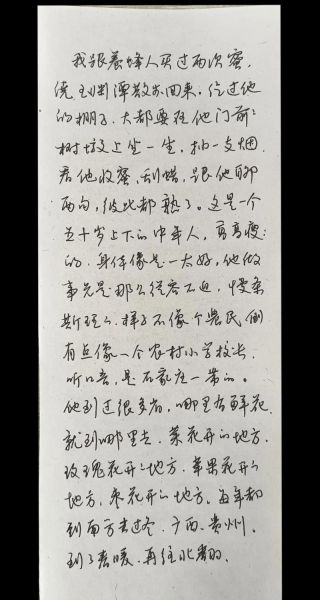 我跟养蜂人买过两次蜜,
绕到渊潭散步回来,经过他
的棚子,大都要在他门前的
树墩上坐一坐,抽一支烟,
看他收蜜,刮蜡,跟他聊
两句,彼此都熟了。这是一个
五十岁上下的中年人,高高瘦瘦
的,身体像是不太好,他做
事总是那么从容不迫,慢条
斯理的,样子不像个農民,倒
有点像一个农村小学校长。
听口音,是石家庄一带的。
他到过很多省,哪里有鲜花,
就到哪里去。菜花开的地方,
玫瑰花开的地方,苹果花开的
地方,枣花开的地方。每年都
到南方去过冬,广西,贵州。
到了春暖,再往北番的。